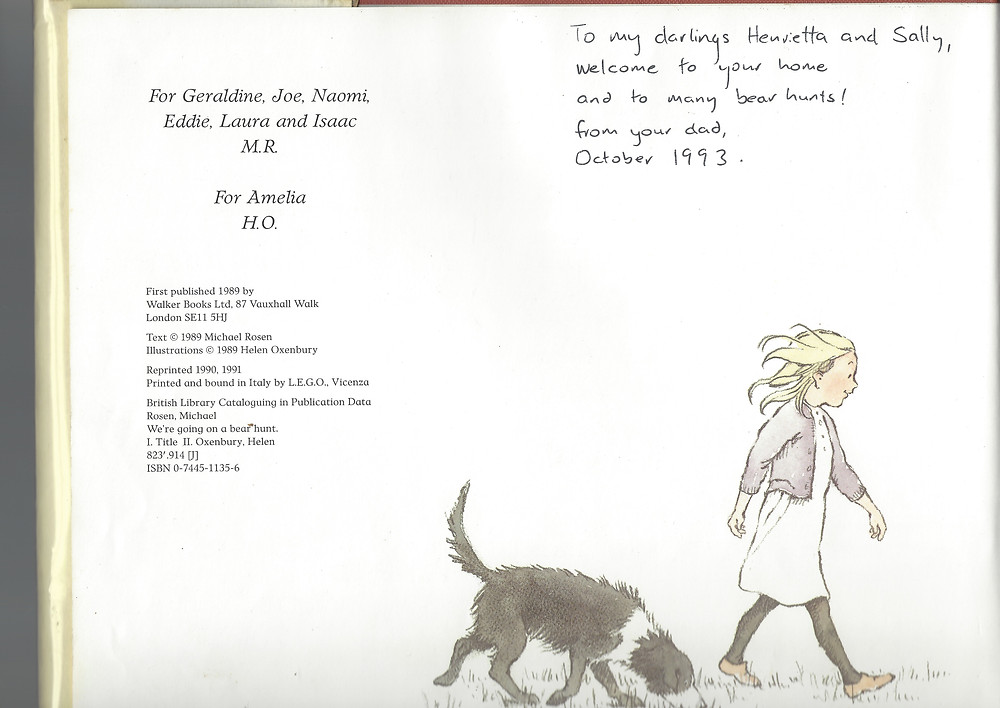 For Geraldine, Joe, Naomi,
Eddie, Laura and Isaac
M.R.
For Amelia
H.O.
First published 1989 by
Walker Books Ltd, 87 Vauxhall Walk
London SE11 5HJ
Text © 1989 Michael Rosen
Illustrations © 1989 Helen Oxenbury
Reprinted 1990, 1991
Printed and bound in Italy by L.E.G.O., Vicenza
British Library Cataloguing in Publication Data
Rosen, Michael
We're going on a bear hunt.
I. Title II. Oxenbury, Helen
823'.914 [J]
ISBN 0-7445-1135-6
To my darlings Henrietta and Sally,
welcome to your home
and to many bear hunts!
from your dad,
October 1993.